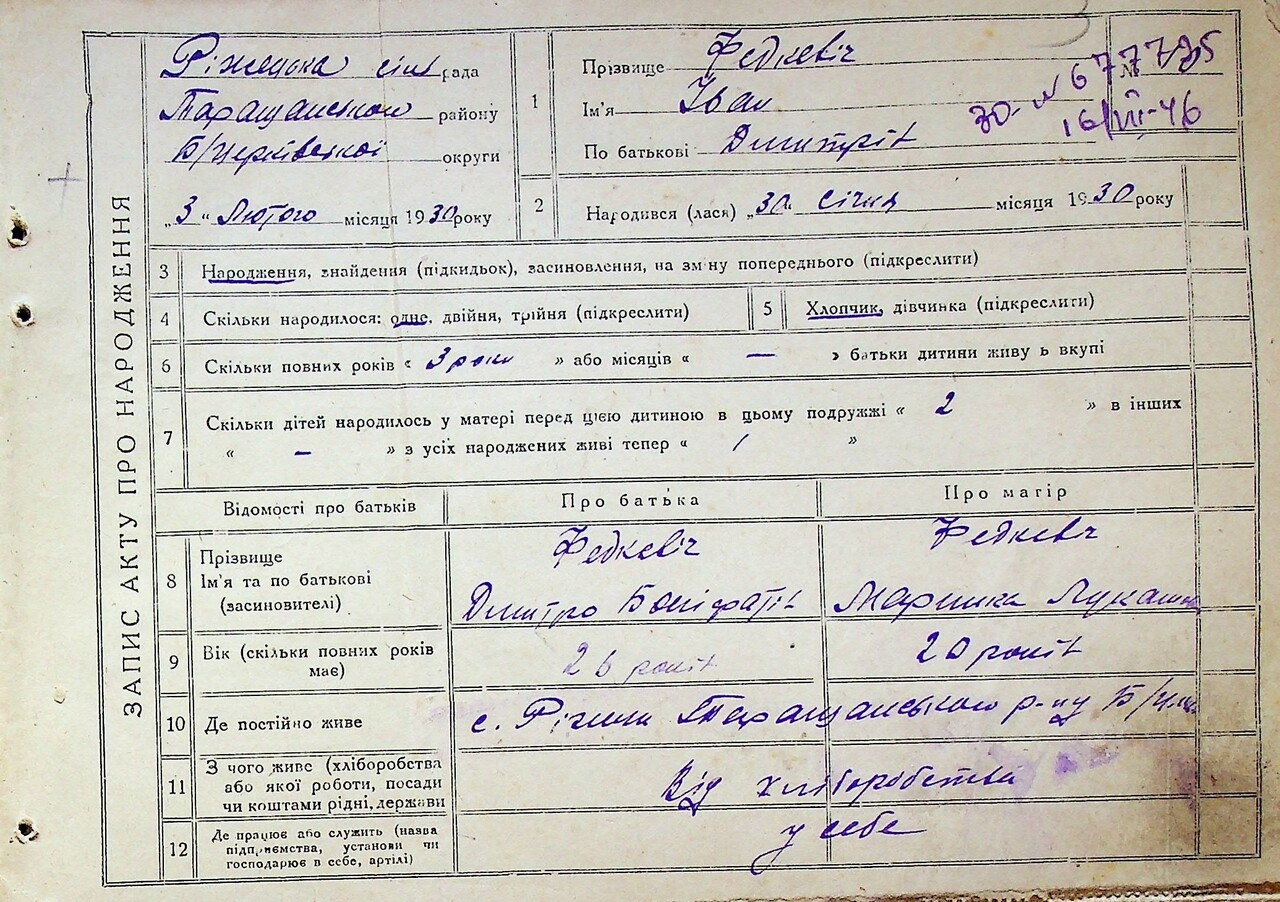 ЗАПИС АКТУ ПРО НАРОДЖЕННЯ
Ріжецька сіль рада
Таращанського району
Б/Церківської округи
„3“ Лютого місяця 1930 року
1 Прізвище Федкевіч
Ім'я Іван
По батькові Дмитрів
№
30- № 677785
16/VII-46
2 Народився (лася) „30“ Січня місяця 1930 року
3 Народження, знайдення (підкидьок), засиновлення, на зміну попереднього (підкреслити)
4 Скільки народилося: одне, двійня, трійня (підкреслити)
5 Хлопчик, дівчинка (підкреслити)
6 Скільки повних років « 3 роки » або місяців « — » батьки дитини живуть вкупі
7 Скільки дітей народилось у матері перед цією дитиною в цьому подружжі « 2 » в інших
« – » з усіх народжених живі тепер « 1 »
Відомості про батьків Про батька Про матір
8 Прізвище Федкевіч Федкевіч
Ім'я та по батькові Дмитро Боніфатів Маринка
(засиновителі)
9 Вік (скільки повних років має) 26 років 20 років
10 Де постійно живе с. Ріжки Таращанського р-ну
11 З чого живе (хліборобства
або якої роботи, посади Від хліборобства
чи коштами рідні, держави
12 Де працює або служить (назва у себе
підприємства, установи чи
господарює в себе, артілі)